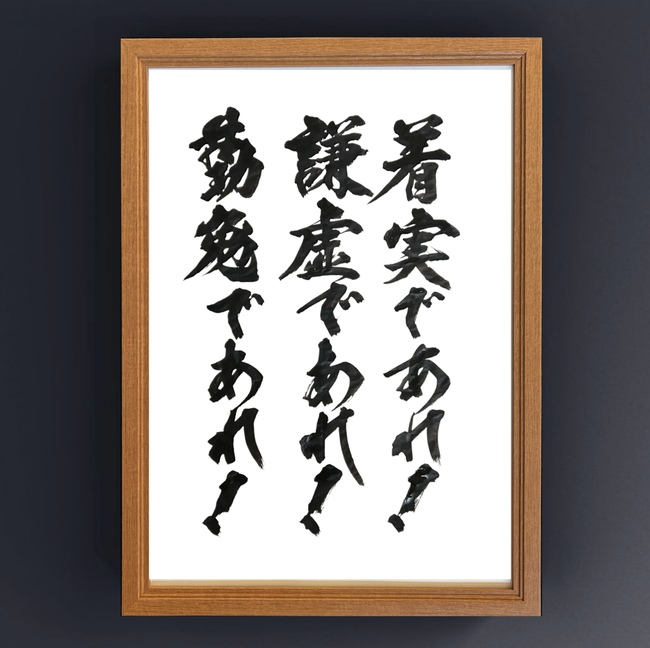 着実であれ！
謙虚であれ！
勤勉であれ！